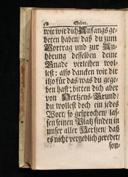 Gebet.
wie wir dich Anfangs ge-
beten haben: daß du zum
Vortrag und zur An-
hörung desselben deine
Gnade verleihen wol-
lest: also dancken wir dir
itzt für das was du gege-
ben hast; bitten dich aber
von Hertzens-Grund,
du wollest doch ein jedes
Wort, so gesprochen,
seinen Platz finden in
unser aller Hertzen, daß
es nicht vergeblich geredet